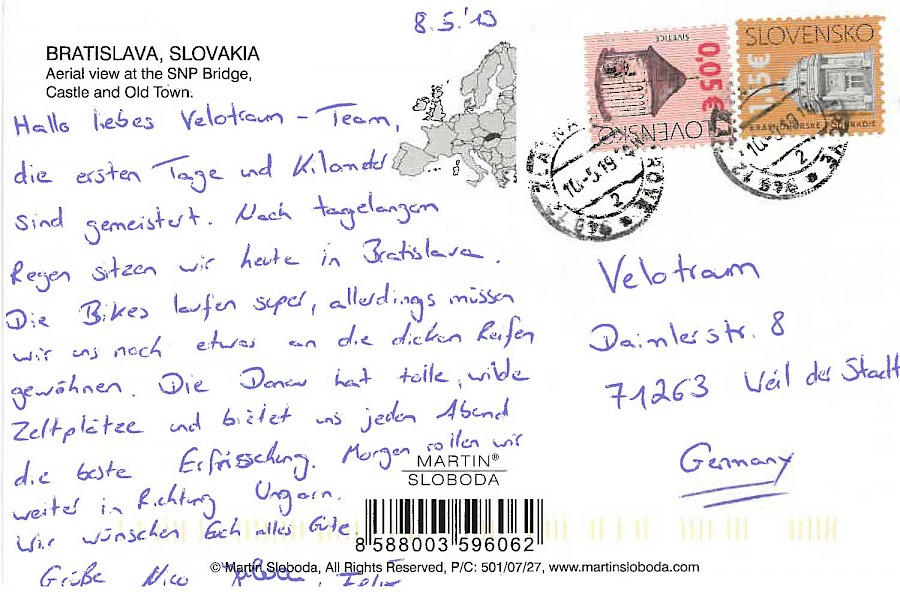 8.5.'19
BRATISLAVA, SLOVAKIA
Aerial view at the SNP Bridge,
Castle and Old Town.
Hallo liebes Velotraum-Team,
die ersten Tage und Kilometer
sind gemeistert. Nach tagelangem
Regen sitzen wir heute in Bratislava.
Die Bikes laufen super, allerdings müssen
wir uns noch etwas an die dicken Reifen
gewöhnen. Die Donau hat tolle, wilde
Zeltplätze und bietet uns jeden Abend
die beste Erfrischung. Morgen rollen wir
weiter in Richtung Ungarn.
Wir wünschen Euch alles Gute.
Grüße Nico
SIVETICE
0,05 €
SLOVENSKO
SLOVENSKO
10.-5.19
2
2
Velotraum
Daimlerstr. 8
71263 Weil der Stadt
Germany
MARTIN®
SLOBODA
8 588003 596062
© Martin Sloboda, All Rights Reserved, P/C: 501/07/27, www.martinsloboda.com